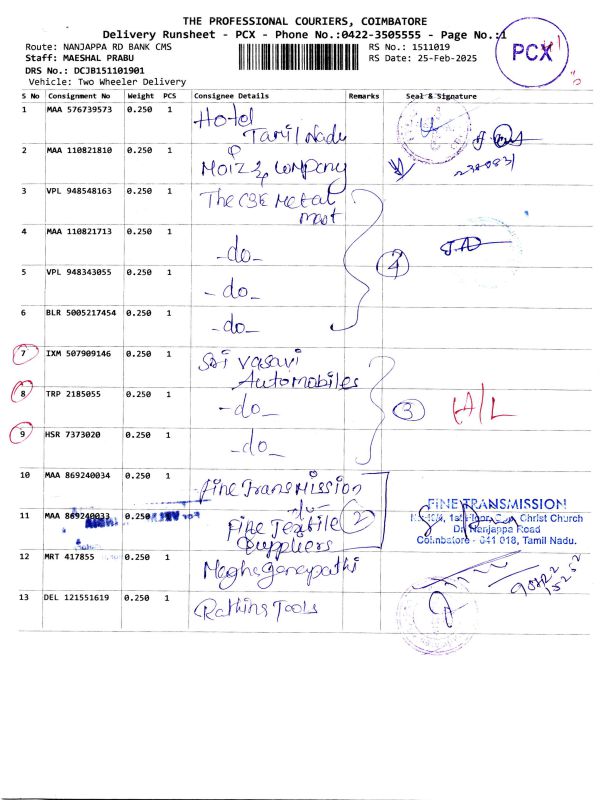 THE PROFESSIONAL COURIERS, COIMBATORE
Delivery Runsheet - PCX - Phone No.:0422-3505555 - Page No.:1
Route: NANJAPPA RD BANK CMS
RS No.: 1511019
Staff: MAESHAL PRABU
RS Date: 25-Feb-2025
DRS No.: DCJB151101901
Vehicle: Two Wheeler Delivery
PCX
S No Consignment No Weight PCS Consignee Details Remarks Seal & Signature
1 MAA 576739573 0.250 1 Hotel
Tamil Nadu
2 MAA 110821810 0.250 1 Moiz & Company
3 VPL 948548163 0.250 1 The CBE Metal
mart
4 MAA 110821713 0.250 1 -do-
5 VPL 948343055 0.250 1 -do-
4
6 BLR 5005217454 0.250 1 -do-
7 IXM 507909146 0.250 1 Sri Vasavi
Automobiles
8 TRP 2185055 0.250 1 -do-
3 A/L
9 HSR 7373020 0.250 1 -do-
10 MAA 869240034 0.250 1 Fine Transmission
11 MAA 869240033 0.250 Fine Textile
Suppliers
2
FINE TRANSMISSION
1st Floor, Christ Church
Dr. Nanjappa Road
Coimbatore - 641 018, Tamil Nadu.
12 MRT 417855 0.250 1 Magha Ganapathi
13 DEL 121551619 0.250 1 Rathins Tools